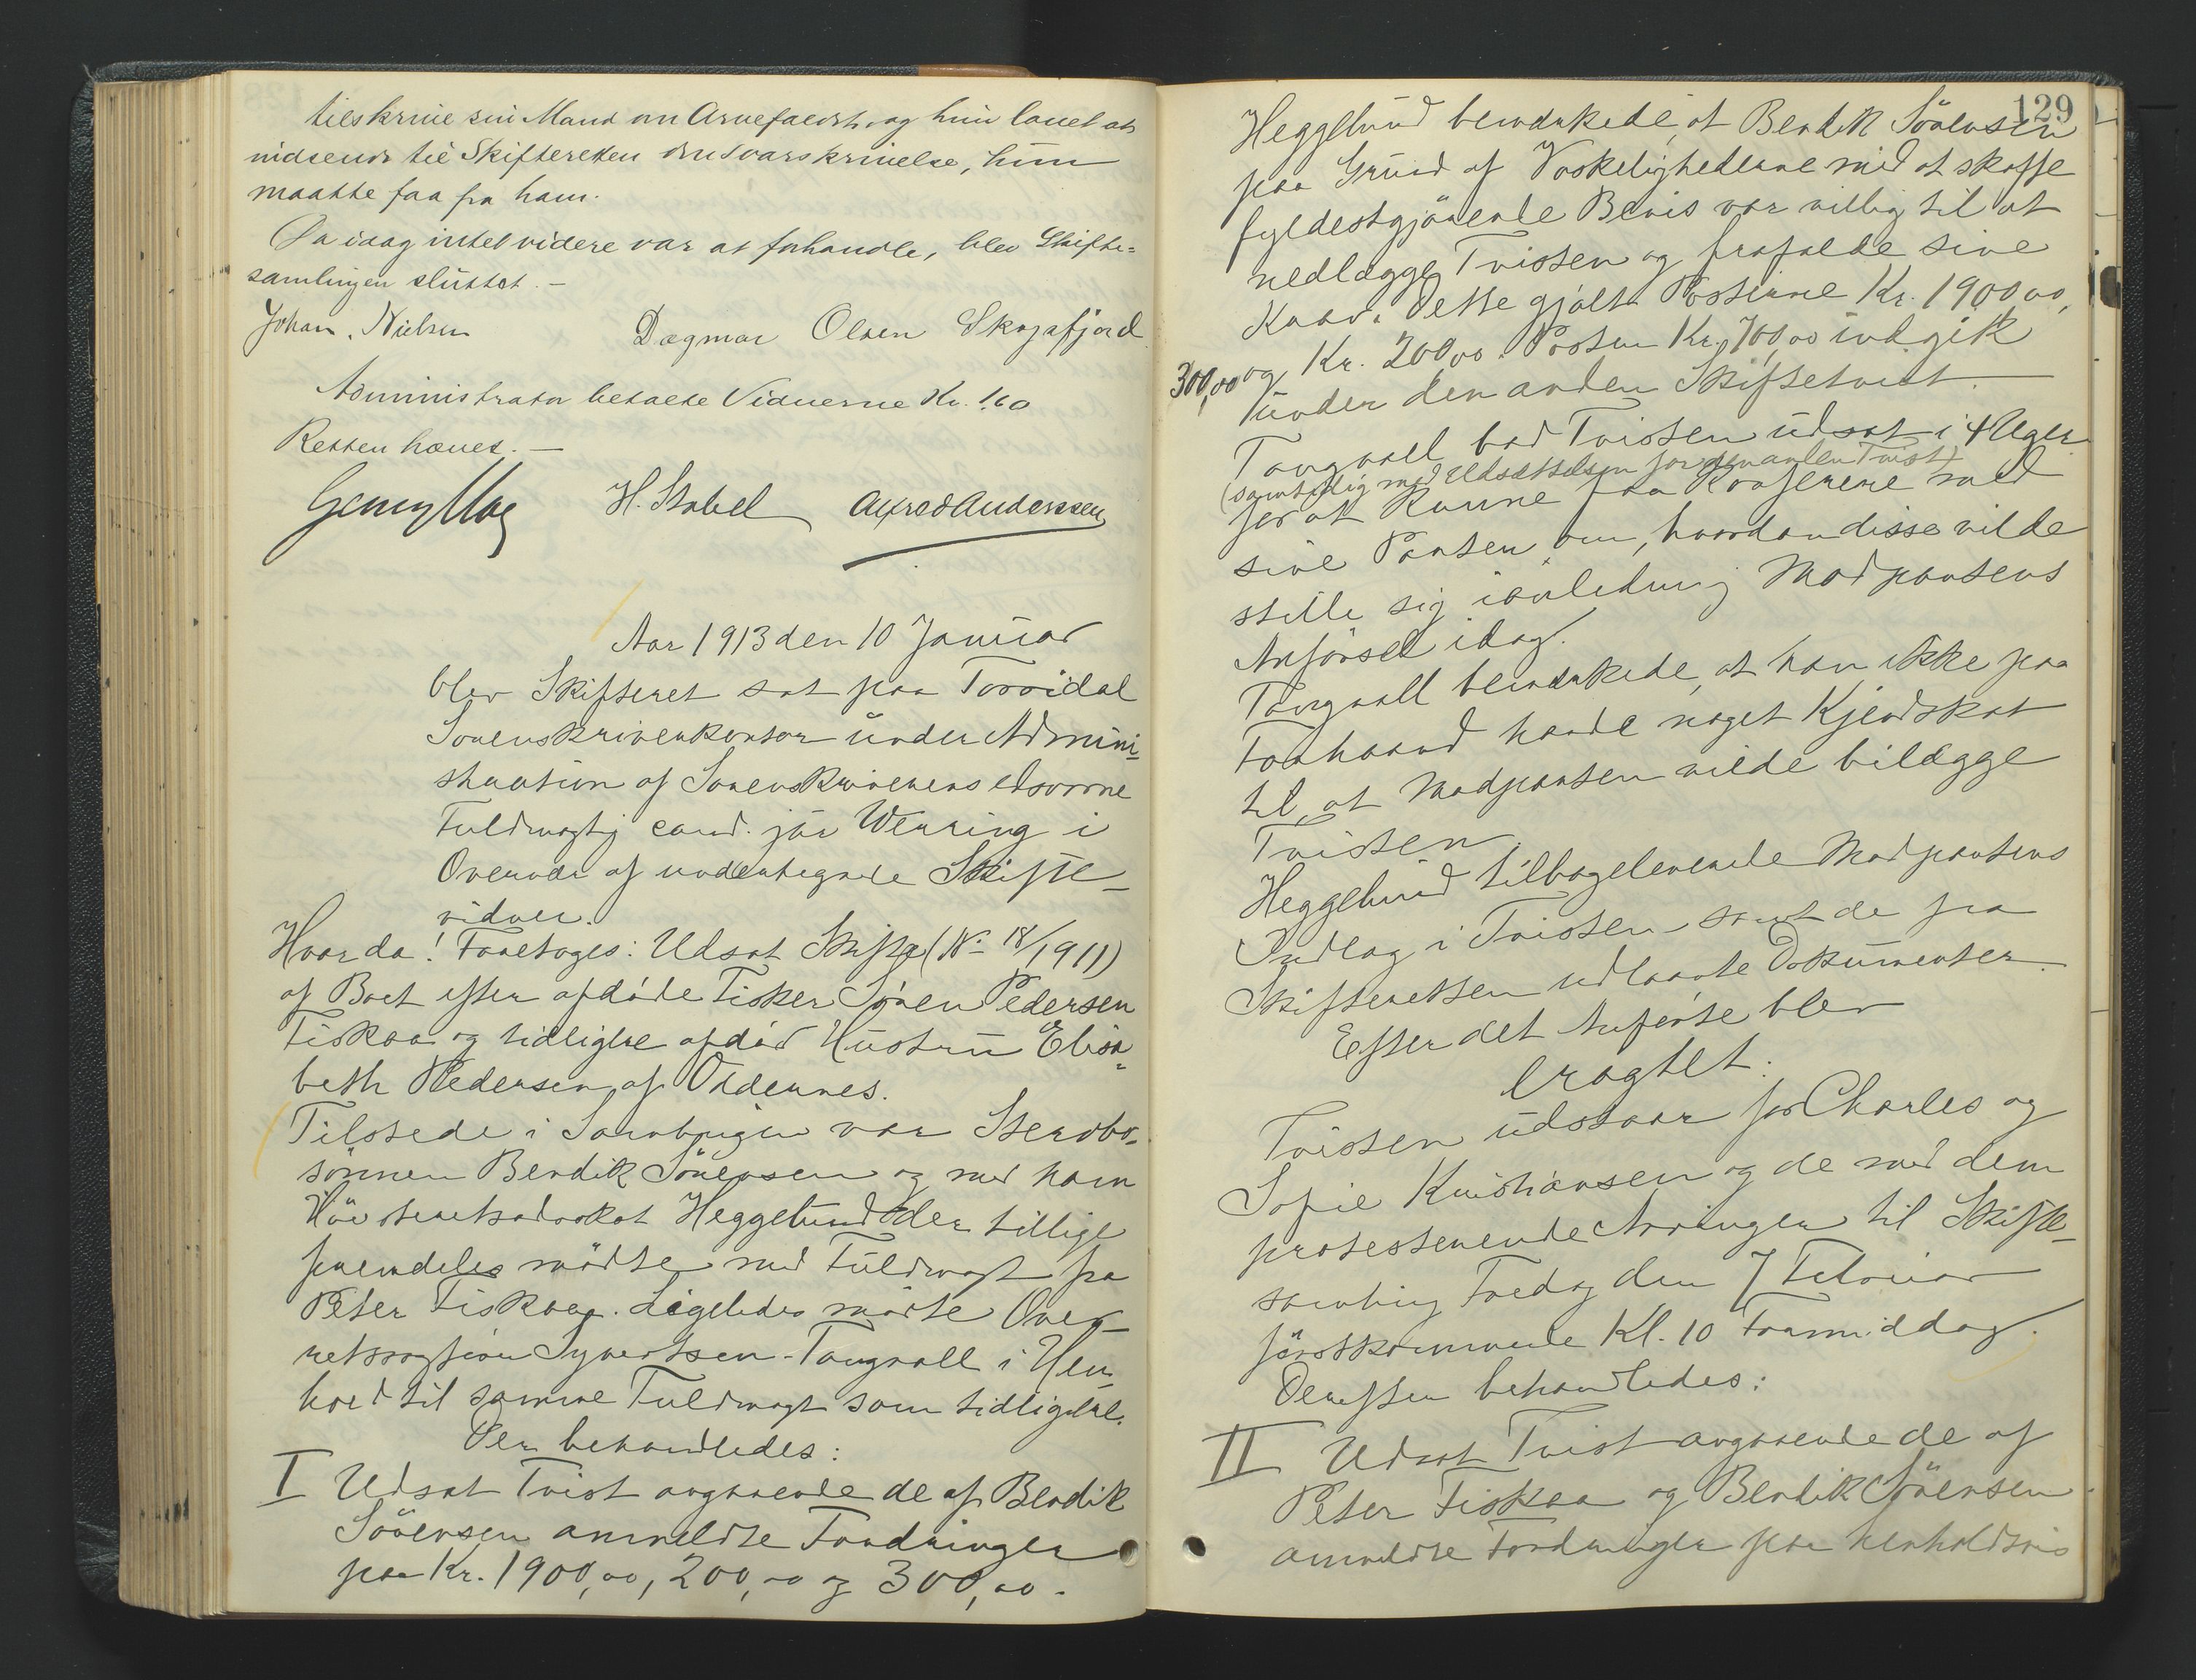 tilskrive sin Mand om Arvefaldet, og hun lovet at
indsende til Skifteretten den Svarskrivelse, hun
maatte faa fra ham.
Da idag intet videre var at forhandle, blev Skifte-
samlingen sluttet. —
Johan. Nielsen Dagmar Olsen Skogsfjord
Administrator betalte Vidnerne Kr. 1.60
Retten hævet. —
H. Stabel Alfred Anderssen
Aar 1913 den 10 Januar
blev Skifteret sat paa
Sorenskriverkontor under Admini-
stration af Sorenskriverens edsvorne
Fuldmægtig cand. jur Wenning i
Overvær af undertegnede Skifte-
vidner.
Hvorda! Foretoges: Udsat Skifte (No 18/1911)
af Boet efter afdøde Fisker Sören Pedersen
Fiskaa og tidligere afdød Hustru Elisa-
beth Pedersen af Oldernes.
Tilstede i Samlingen var Stervbo-
sönnen Bendik Sörensen og med ham
Höiesteretsadvokat Heggelund der tillige
fremdeles mödte med Fuldmagt fra
Peter Fiskaa. Ligeledes mödte Over-
retssagförer Syvertsen-Tangvall i Hen-
hold til samme Fuldmagt som tidligere.
Der behandledes:
I Udsat Tvist angaaende de af Bendik
Sörensen anmeldte Fordringer
paa Kr. 1900,00, 200,00 og 300,00.
129
Heggelund bemærkede, at Bendik Sörensen
paa Grund af Vanskelighederne med at skaffe
fyldestgjörende Bevis var villig til at
nedlægge Tvisten og frafalde sine
Krav. Dette gjaldt Posterne Kr. 1900 00,
300,00 og Kr. 200,00. Posten Kr. 700,00 indgik
under den anden Skiftetvist.
Tangvall bad Tvisten udsat i 4 Uger
(samtidig med Udsættelsen for den anden Tvist)
for at kunne faa konferere med
sine Parter om, hvordan disse vilde
stille sig i anledning Modpartens
Anförsel idag.
Tangvall bemærkede, at han ikke paa
Forhaand havde noget Kjendskab
til, at Modparten vilde bilægge
Tvisten.
Heggelund tilbageleverede Modpartens
Indlæg i Tvisten samt de fra
Skifteretten udlaante Dokumenter.
Efter det Anförte blev
eragtet:
Tvisten udstaar for Charles og
Sofie Kristiansen og de med dem
protesterende Arvinger til Skifte-
samling Fredag den 7 Februar
förstkommende Kl. 10 Formiddag.
Derefter behandledes:
II Udsat Tvist angaaende de af
Peter Fiskaa og Bendik Sörensen
anmeldte Fordringer paa henholdsvis